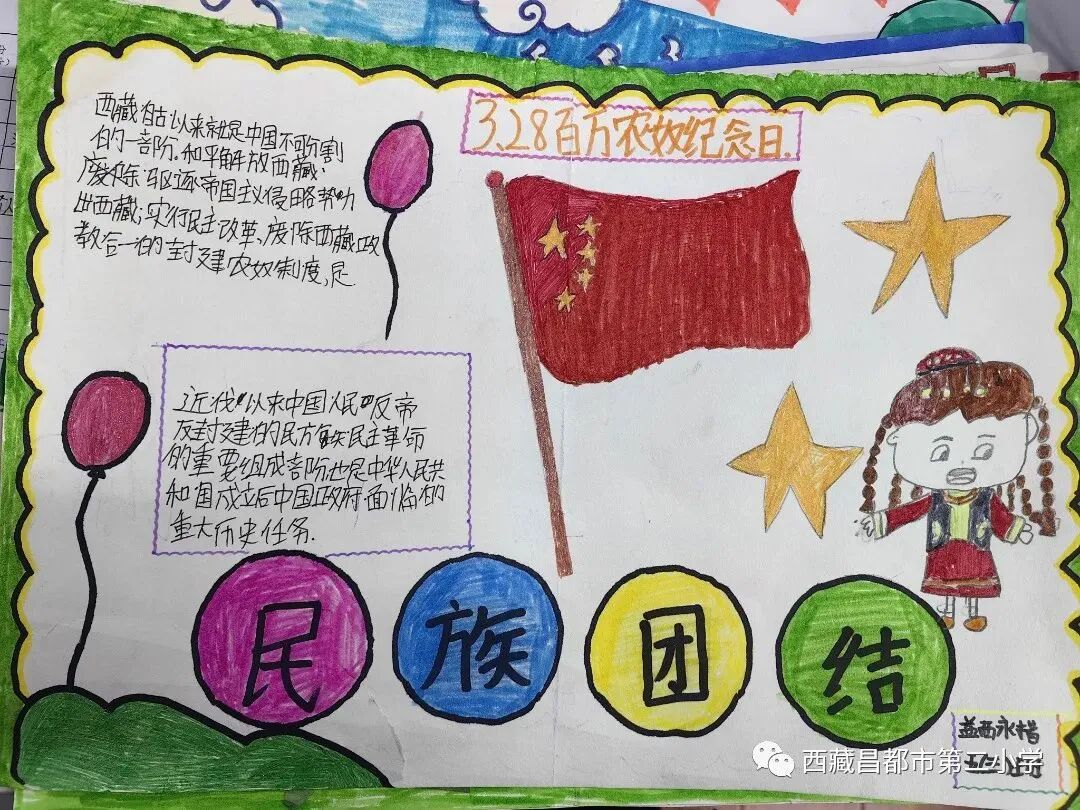 3.28百万农奴纪念日.
西藏自古以来就是中国不可份割
的一部阶.和平解放西藏、
废除驱逐帝国主义侵略势力
出西藏;实行民主改革、废除西藏政
教合一的封建农奴制度,是
近代以来中国人民反帝
反封建的民族民主革命
的重要组成部阶也是中华人民共
和国成立后中国政府面临的
重大历史任务.
民族团结
益西永措
西藏昌都市第二小学